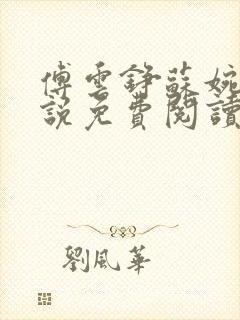 傅雲錚蘇婉
說免費閱讀
劉風華